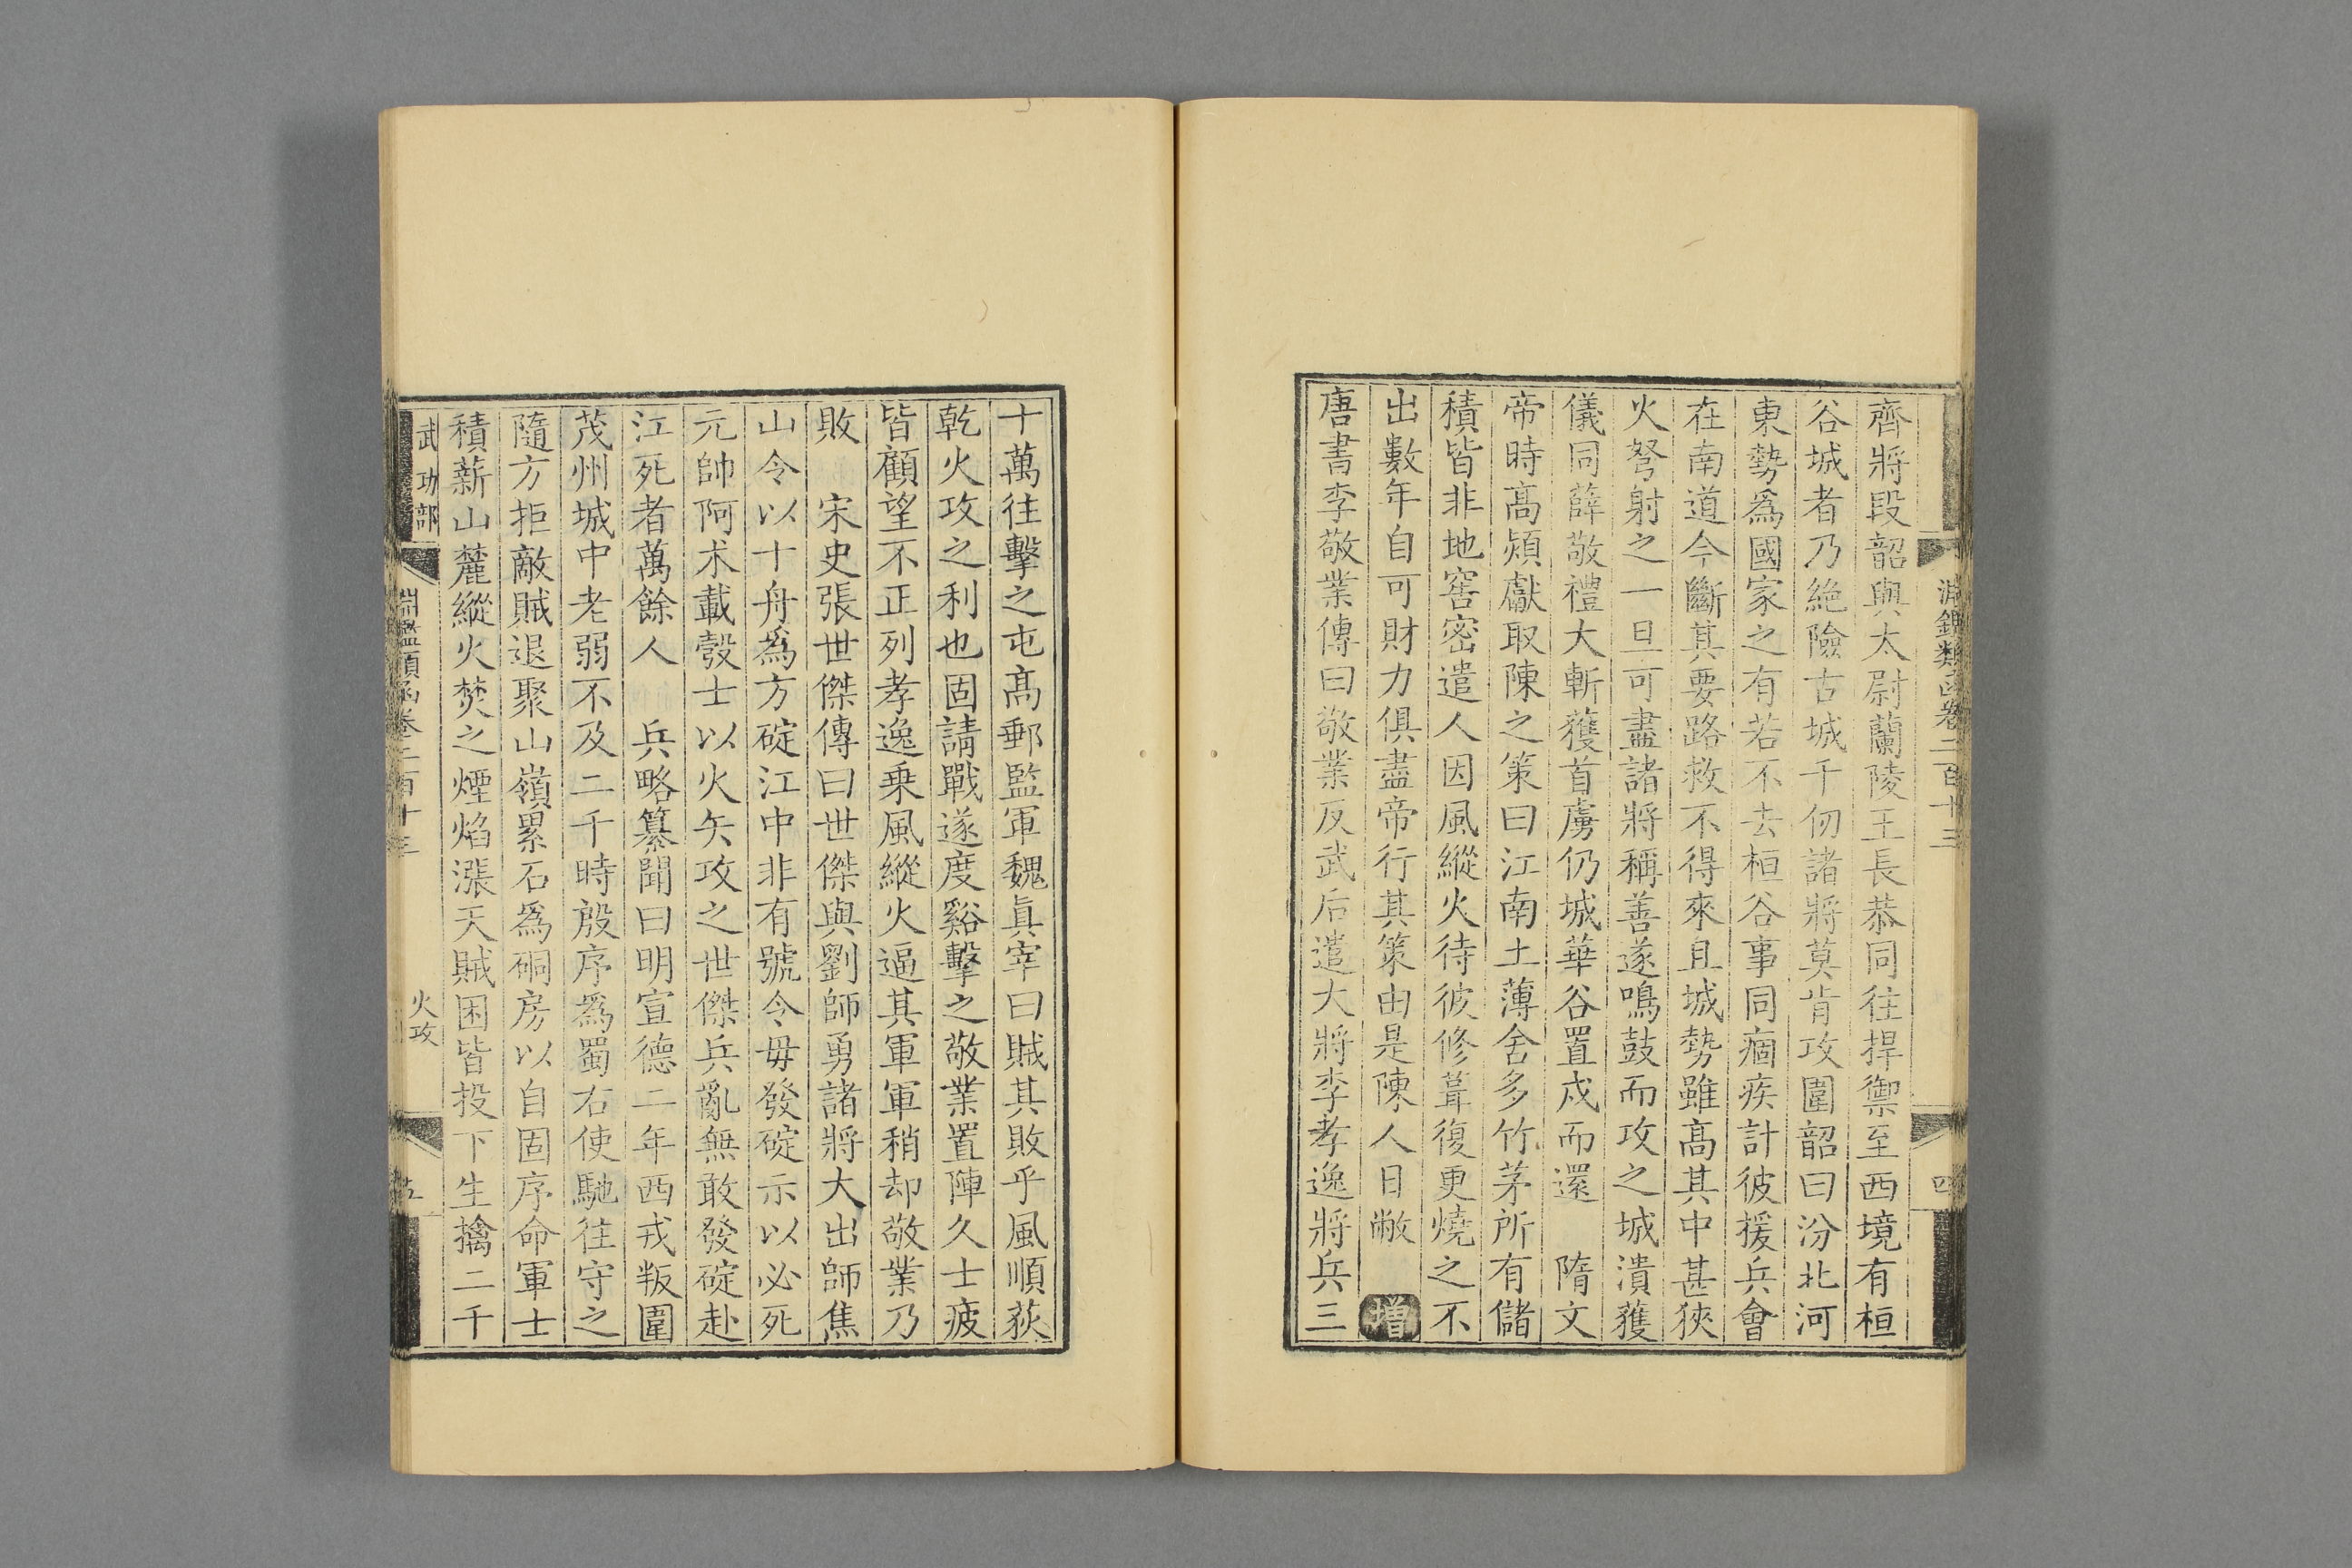 淵鑑類函卷二百十三
四
齊將段韶與太尉蘭陵王長恭同往捍禦至西境有桓
谷城者乃絶險古城千仞諸將莫肯攻圍韶曰汾北河
東勢爲國家之有若不去桓谷事同痼疾計彼援兵會
在南道今斷其要路救不得來且城勢雖高其中甚狹
火弩射之一旦可盡諸將稱善遂鳴鼓而攻之城潰獲
儀同薛敬禮大斬獲首虜仍城華谷置戍而還 隋文
帝時高熲獻取陳之策曰江南土薄舍多竹茅所有儲
積皆非地窖密遣人因風縱火待彼修葺復更燒之不
出數年自可財力俱盡帝行其策由是陳人日敝 增
唐書李敬業傳曰敬業反武后遣大將李孝逸將兵三
十萬往擊之屯高郵監軍魏眞宰曰賊其敗乎風順荻
乾火攻之利也固請戰遂度谿擊之敬業置陣久士疲
皆顧望不正列孝逸乗風縱火逼其軍軍稍却敬業乃
敗 宋史張世傑傳曰世傑與劉師勇諸將大出師焦
山令以十舟爲方碇江中非有號令毋發碇示以必死
元帥阿术載彀士以火矢攻之世傑兵亂無敢發碇赴
江死者萬餘人 兵略纂聞曰明宣德二年西戎叛圍
茂州城中老弱不及二千時殷序爲蜀右使馳往守之
隨方拒敵賊退聚山嶺累石爲硐房以自固序命軍士
積薪山麓縱火焚之煙焰漲天賊困皆投下生擒二千
武功部
淵鑑類函卷二百十三
火攻
五